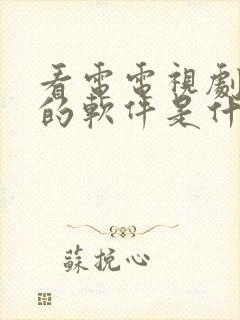 看雷電視劇
的軟件是什
蘇挽心